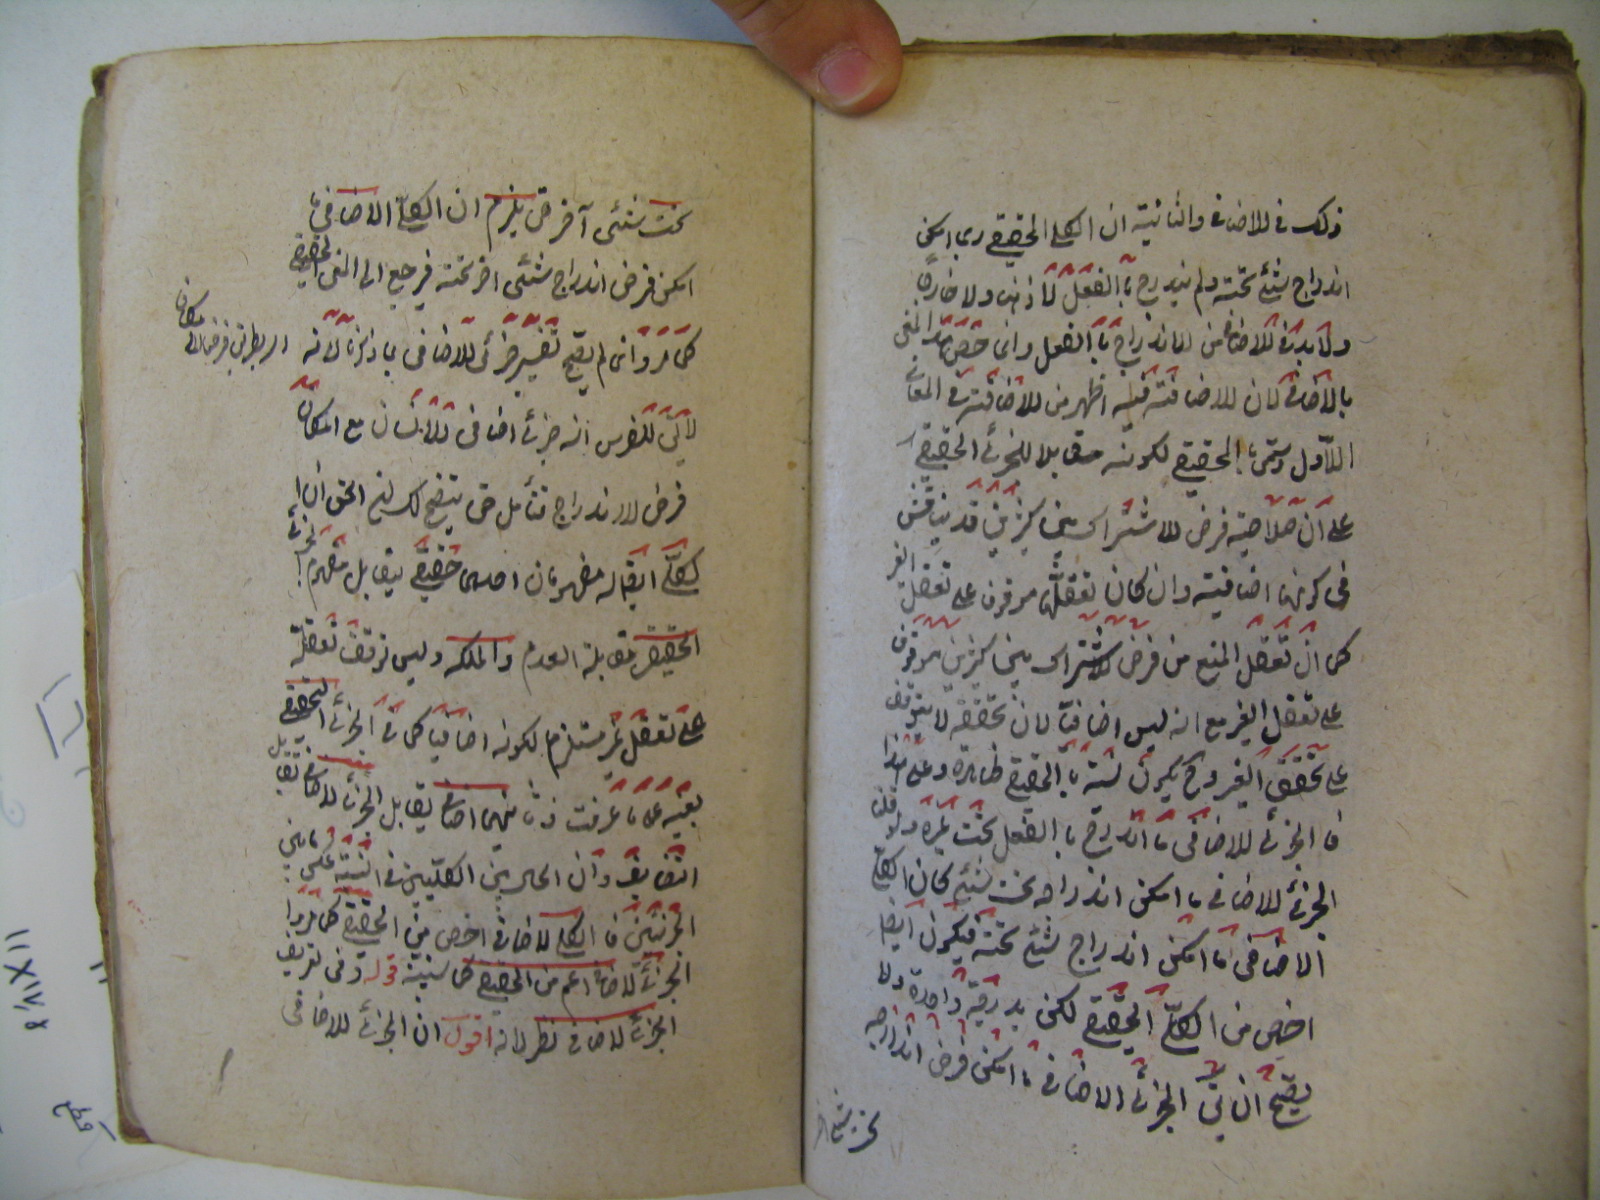 ذلك في للاضافي والثانية ان الكلي الحقيقي ربما امكن
اندراج شئ تحته ولم يندرج باالفعل لا ذهنا ولا خارجا
ولا بد في للاضافي من للاندراج باالفعل وانما خص هذا المعنى
باالاضافي لان للاضافة فيه اظهر من للاضافة في المعنى
اللاول وسمي باالحقيقي لكونه مقابلا للجزئي الحقيقي
على ان صلاحية فرض للاشتراك بين كثيرين قد يناقش
في كونها اضافية وان كان تعقلها موقوف على تعقل الغير
كما ان تعقل المنع من فرض للاشتراك بين كثيرين موقوف
على تعقل الغير مع انه ليس اضافيا لان تحققه لا يتوقف
على تحقق الغير وح يكون تسميته باالحقيقي ظاهرة وعلى هذا
فاالجزئي للاضافي ما اندرج باالفعل تحت غيره ولو قلنا
الجزئي للاضافي ما امكن اندراجه تحت شئ كان الكلي
الاضافي ما امكن اندراج شئ تحته فيكون ايضا
اخص من الكلي الحقيقي لكن بدرجة واحدة ولا
يصح ان يق الجزئي الاضافي ما امكن فرض اندراجه
تحت شئ
تحت شئ آخر حتى يلزم ان الكلي الاضافي ما
امكن فرض اندراج شئ اخر تحته فيرجع الى المعنى الحقيقي
كما مر وانما لم يصح تفسير جزئي للاضافي بما ذكرنا لانه
لا يق للفرس انه جزئي اضافي للانسان مع امكان
فرض للاندراج فتأمل حتى يتضح لك ان الحق ان
الكلي ايضا له مفهومان احدهما حقيقي يقابل مفهوم الجزئي
الحقيقي مقابلة العدم والملكه وليس توقف تعقله
على تعقل غير مستلزم لكونه اضافيا كما في الجزئي الحقيقي
بعينه على ما عرفت وثانيهما اضافي يقابل الجزئي للاضافي تقابل
التضايف وان الحال بين الكليين في النسبة على عكس ما بين
الجزئيين فا الكلي للاضافي اخص من الحقيقي كما مر وا
الجزئي للاضافي اعم من الحقيقي كما سنبينه قوله وفي تعريف
الجزئي للاضافي نظر لانه اقول ان الجزئي للاضافي